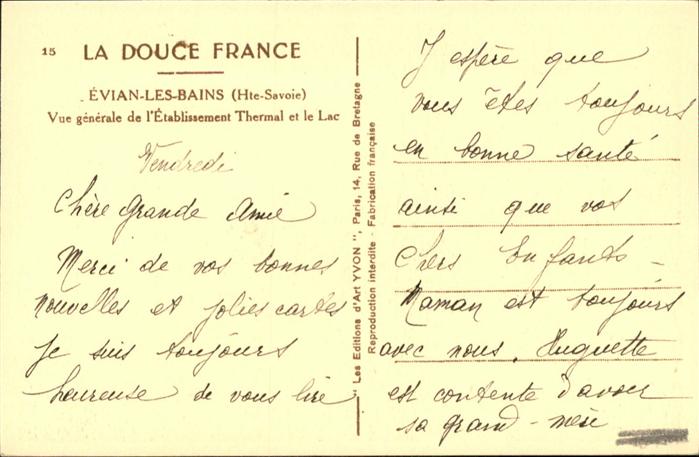 15 LA DOUCE FRANCE
ÉVIAN-LES-BAINS (Hte-Savoie)
Vue générale de l'Établissement Thermal et le Lac
Vendredi
Chère Grande Amie
Merci de vos bonnes
nouvelles et jolies cartes
Je suis toujours
heureuse de vous lire
" Les Editions d'Art YVON ", Paris, 14, Rue de Bretagne
Reproduction interdite - Fabrication française
J'espère que
vous êtes toujours
en bonne santé
ainsi que vos
Chers Enfants -
Maman est toujours
avec nous. Huguette
est contente d'avoir
sa grand-mère